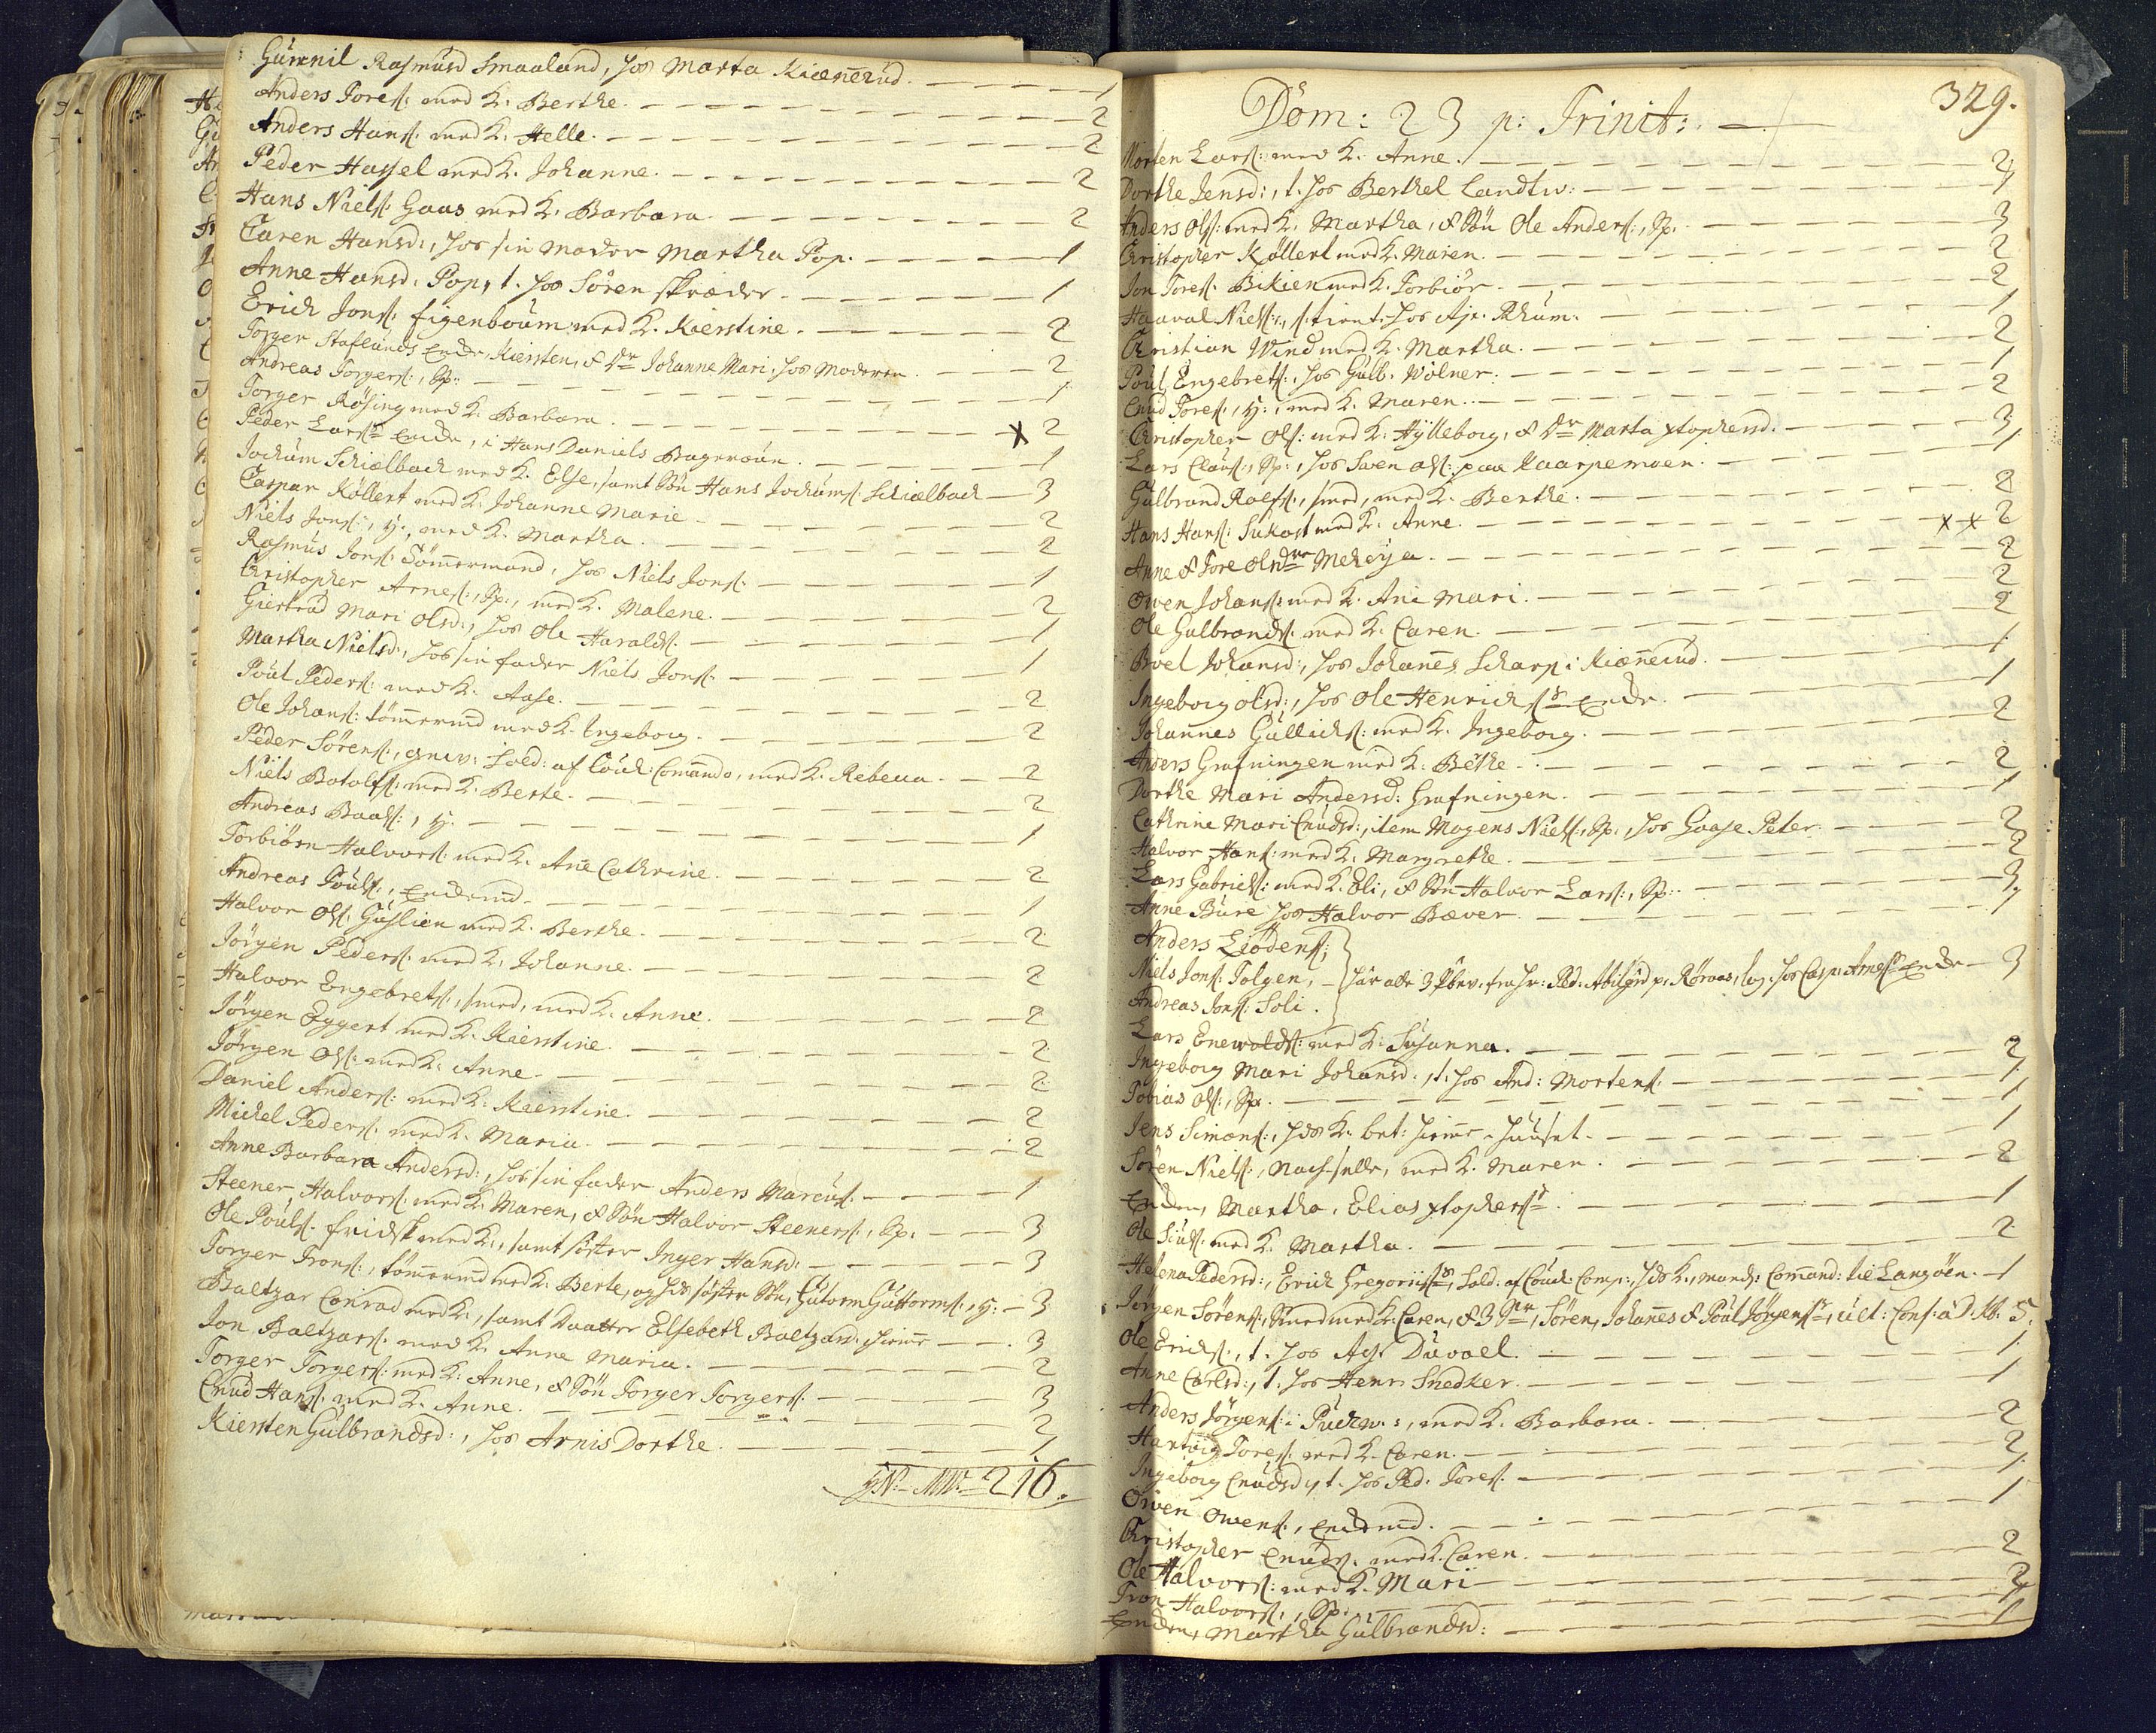 Gunnil Rasmusd Smaaland, hos Marta Kiennerud. 1
Anders Tores: med K. Berthe. 2
Anders Hans: med K. Helle. 2
Peder Hassel med K. Johanne. 2
Hans Niels: Gaas med K. Barbara. 2
Caren Hansd:, hos sin moder Martha Pop. 1
Anne Hansd. Pop, t. hos Sören skræder. 1
Erich Jons: Eigenboum med K. Kierstine. 2
Torger Staflunds Enke, Kiersten, & Dr Johanne Mari, hos Moderen. 2
Andreas Torgers:, Sp: 1
Torger Rösing med K. Barbara. x 2
Peder Larss Enke, i Hans Daniels Bagerouu. 1
Jochum Schiælbach med K. Else, samt Sön Hans Jochums: Schiælbach 3
Caspar Köllert med K. Johanne Marie 2
Niels Jons:, y., med K. Martha. 2
Rasmus Jons: Tömmermand, hos Niels Jons: 1
Christopher Arnes:, Sp., med K. Malene. 2
Giertrud Mari Olsd:, hos Ole Haralds: 1
Martha Nielsd:, hos sin fader Niels Jons: 1
Poul Peders: med K. Aase. 2
Ole Johans: tömmermd med K. Ingeborg. 2
Peder Sörens:, gev: Sold: af Couch: Comando, med K. Rebecca. 2
Niels Botolfs: med K. Berte. 2
Andreas Baals:, y. 1
Torbiörn Halvors: med K. Ane Cathrine. 2
Andreas Pouls:, Enkemd. 1
Halvor Ols: Guslien med K. Berthe. 2
Jörgen Peders: med K. Johanne. 2
Halvor Engebrets:, smed, med K. Anne. 2
Jörgen Eggert med K. Kierstine. 2
Jörgen Ols: med K. Anne. 2
Daniel Anders: med K. Kierstine. 2
Michel Peders: med K. Maria. 2
Anne Barbara Andersd:, hos sin fader Anders Marcus: 1
Steener Halvors: med K. Maren, & Sön Halvor Steeners:, Sp. 3
Ole Pouls: fridsk med K:, samt söster Inger Hansd: 3
Torger Trons:, tömmermd med K. Berte, og hds söster Sön, Gutorm Guttorms:, y: 3
Baltzar Conrad med K:, samt Daatter Elsebeth Baltzard. hiemme 3
Jon Baltzars: med K. Anna Maria. 2
Torger Torgers: med K: Anne, & Sön Torger Torgers: 3
Cnud Hans: med K. Anne. 2
Kiersten Gulbrandsd:, hos Arnis Dorthe. 1
216.
329.
Dom: 23 p: Trinit:
Morten Lars: med K. Anne. 2
Dorthe Jensd:, t. hos Berthel Landtw: 1
Anders Ols: med K. Martha, & Sön Ole Anders:, Sp. 3
Christopher Köllert med K. Maren. 2
Jon Tores: Bikien med K. Torbiör. 2
Haaval Niels:, s. tient. hos Ass. Rhum. 1
Christian Wind med K. Martha. 2
Poul Engebrets:, hos Gulb. Wölner. 1
Cnud Tores:, y:, med K. Maren. 2
Christopher Ols: med K. Hylleborg, & Dr Marta xtophersd. 3
Lars Claus:, Sp., hos Swen Ols: paa Kaarpemoen. 1
Gulbrand Roefs:, smed, med K. Berthe. 2
Hans Hans: Sukost med K. Anne. x x 2
Anne & Tore Olsdtr Meheja. 2
Owen Johans: med K. Ane Mari. 2
Ole Gulbrands: med K. Caren. 2
Boel Johansd:, hos Johannes Scharp i Kiennerud. 1
Ingeborg Olsd:, hos Ole Henrichss Enke. 1
Johannes Gullichs: med K. Ingeborg. 2
Anders Grafningen med K. Bethe. 2
Dorthe Mari Andersd: Grafningen. 1
Cathrine Mari Cnudsd:, item Mogens Niels:, Sp., hos Gaase Peter. 2
Halvor Hans: med K. Margrethe. 2
Lars Gabriels: med K. Eli, & Sön Halvor Lars:, Sp: 3
Anne Bure hos Halvor Bæver. 1
Anders Liödens:,
Niels Jons: Tolgen, har alle 3 bev. fra Hr: Ped: Abilgrd p. Röraas, log. hos Casp: Arness Enke 3
Andreas Jons: Soli.
Lars Enewolds: med K: Susanna. 2
Ingeborg Mari Johansd:, t. hos And: Mortens: 1
Tobias Ols:, Sp. 1
Jens Simons:, hds K. bet: hiemme i Huuset. 1
Sören Niels:, med K. Maren. 2
Enken, Martha, Elias xtopherss. 1
Ole Siuls: med K. Martha. 2
Helena Pedersd:, Erich Gregoriiss, Sold: af Couch: Comp:, hds K., mand: Comand: til Langöen. 1
Jörgen Sörens:, Smed med K. Caren, & 3 Sr, Sören, Johanes & Poul Jörgenss, ult: Conf: 5.
Ole Erichs:, t. hos Ass Duvael. 1
Anne Carlsd:, t. hos Henr: Snedker. 1
Anders Jörgens: i Puchw:, med K. Barbara. 2
Hartvig Tores: med K. Caren. 2
Ingeborg Cnudsd, t. hos Ped: Tores: 1
Owen Owens:, Enkemd. 1
Christopher Cnuds: med K. Caren. 2
Ole Halvors: med K. Mari 2
Tron Halvors:, Sp. 1
Enken, Martha Gulbrandsd: 1